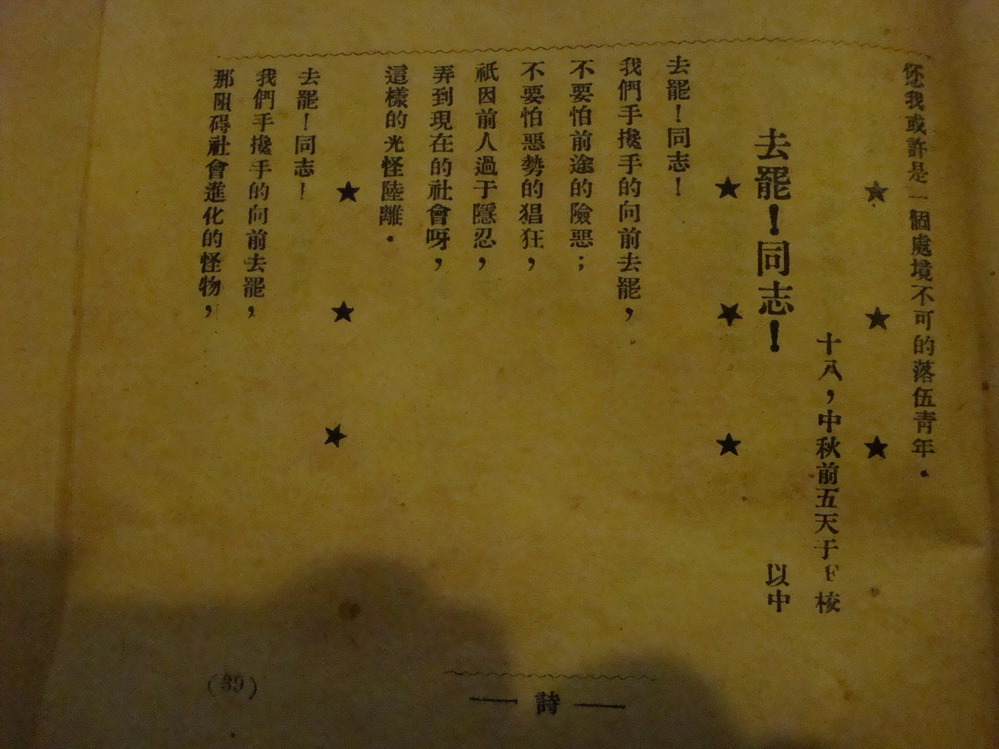 我或許是一個處境不可的落伍青年．
★ ★ ★
十八，中秋前五天于 校
去罷！同志！ 以中
★ ★ ★
去罷！同志！
我們手攙手的向前去罷，
不要怕前途的險惡；
不要怕惡勢的猖狂，
祇因前人過于隱忍，
弄到現在的社會呀，
這樣的光怪陸離．
★ ★ ★
去罷！同志！
我們手攙手的向前去罷，
那阻碍社會進化的怪物，
詩
(39)